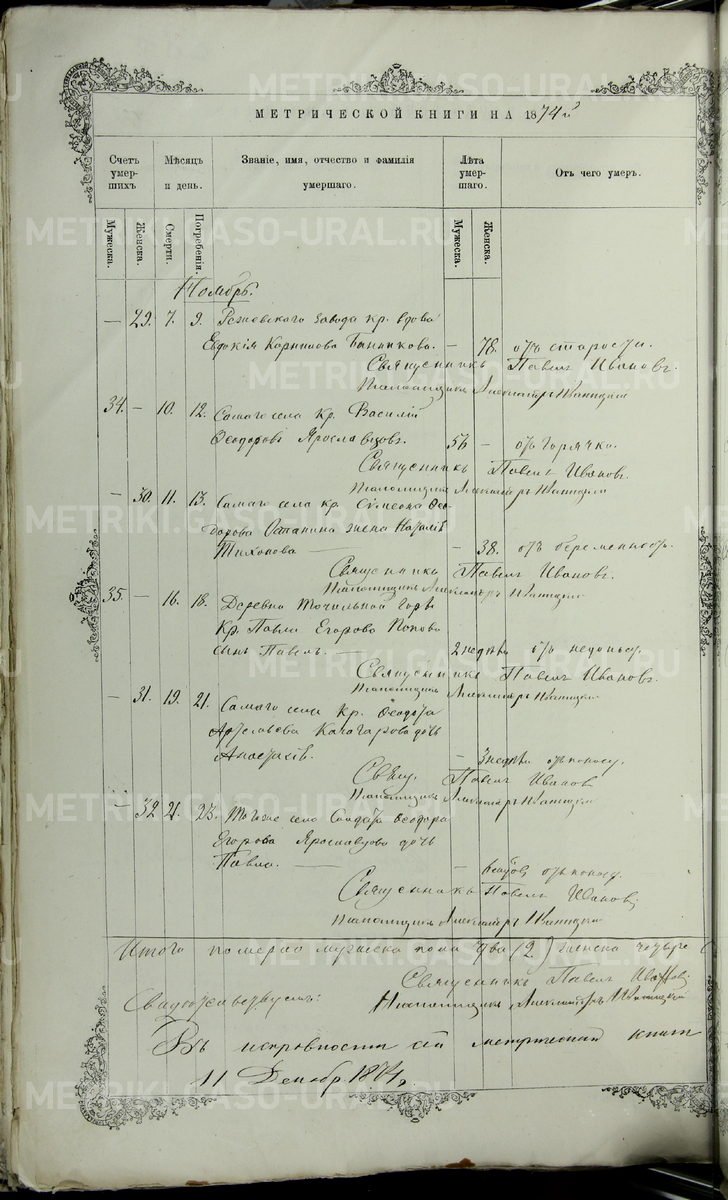 МЕТРИЧЕСКОЙ КНИГИ НА 1874й
Счетъ умер-шихъ
Мѣсяцъ и день.
Званіе, имя, отчество и фамилія умершаго.
Лѣта умер-шаго.
Отъ чего умеръ.
Мужеска.
Женска.
Смерти.
Погребенія.
Мужеска.
Женска.
Ноябрь.
— 29. 7. 9. Режевскаго завода кр. вдова
Евдокія Корнилова — 78. отъ старости.
Священникъ Павелъ Ивановъ.
Александръ
34. — 10. 12. Самаго села Кр. Василій
Ѳеодоровъ Ярославцовъ. 56 — отъ горячки.
Священникъ Павелъ Ивановъ.
Александръ
— 30. 11. 13. Самаго села кр. Симеона Ѳео-
дорова Останина жена Наталія
Тихонова — — 38. отъ беременности.
Священникъ Павелъ Ивановъ.
Александръ
35. — 16. 18. Деревни Точильной горы
Кр. Павла Егорова Попова
сынъ Павелъ. — 2 недѣли отъ
Священникъ Павелъ Ивановъ.
Александръ
— 31. 19. 21. Самаго села Кр. Ѳеодота
дочь
Анастасія. — 3 недѣл. отъ поносу.
Свящ. Павелъ Ивановъ
Александръ
— 32 21. 23. Тогоже села Солдата Ѳеодора
Егорова Ярославцова дочь
Павла. — — отъ поносу.
Священникъ Павелъ Ивановъ.
Александръ
Итого померло мужеска пола два (2) женска четыре (
Священникъ Павелъ Ивановъ.
Свидѣтельствуемъ: Александръ
Въ исправности сей метрической книги
11 Декабр. 1874 г.
METRIKI.GASO-URAL.RU